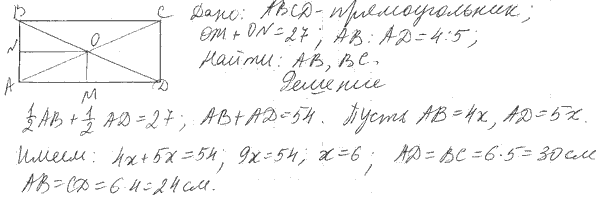 B C
Дано: ABCD - прямоугольник;
OM + ON = 27; AB : AD = 4:5;
N O
Найти: AB, BC.
A M D
Решение
1/2 AB + 1/2 AD = 27; AB + AD = 54. Пусть AB = 4x, AD = 5x.
Имеем: 4x + 5x = 54; 9x = 54; x = 6; AD = BC = 6·5 = 30 см
AB = CD = 6·4 = 24 см.